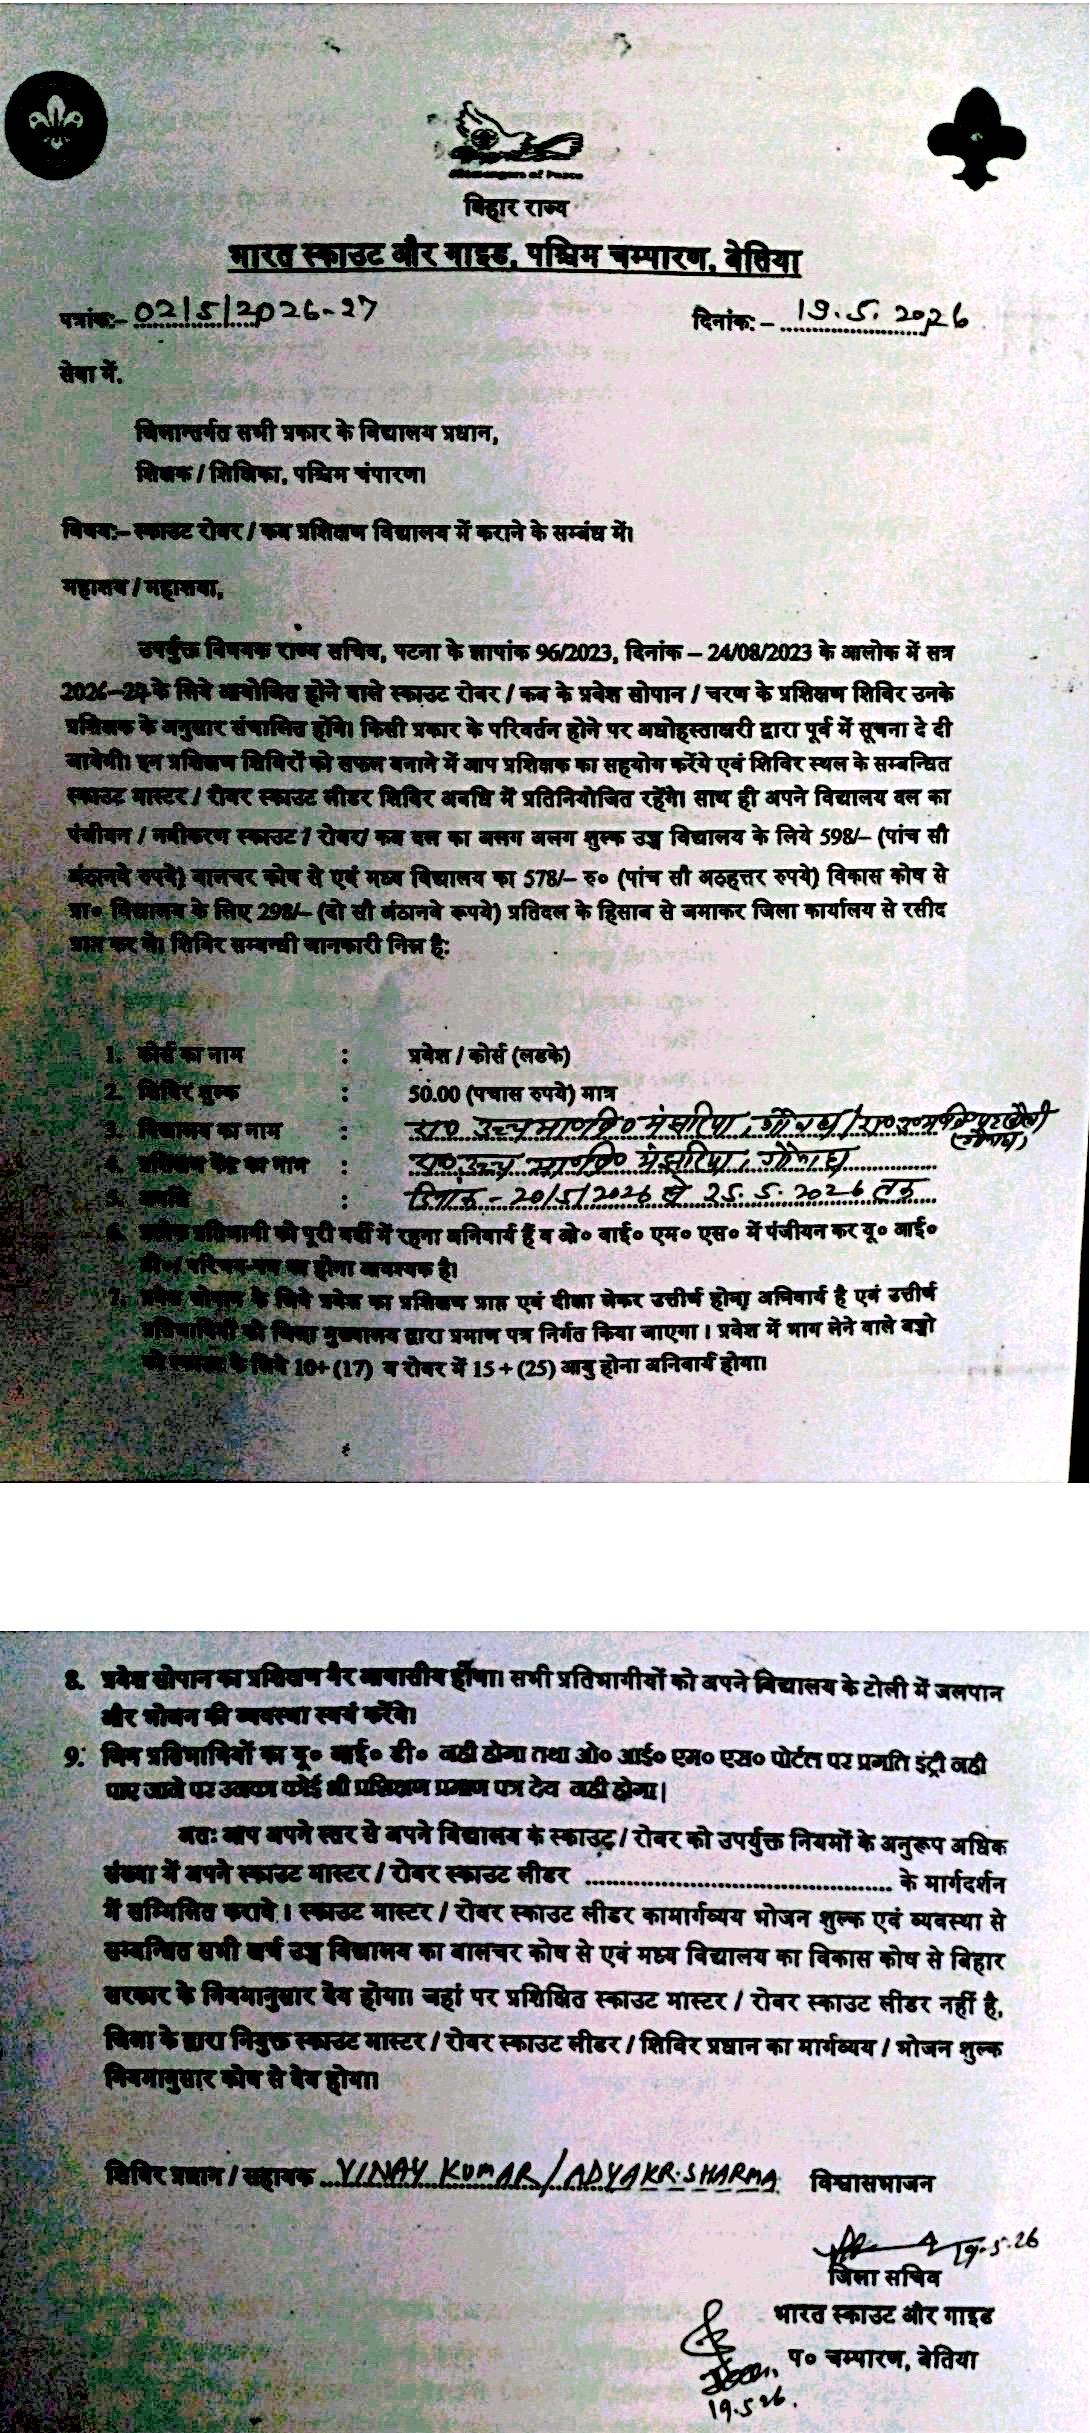 Messengers of Peace
बिहार राज्य
भारत स्काउट और गाइड, पश्चिम चम्पारण, बेतिया
पत्रांक:- 02/5/2026-27 दिनांक: - 19.5.2026
सेवा में,
जिलान्तर्गत सभी प्रकार के विद्यालय प्रधान,
शिक्षक / शिक्षिका, पश्चिम चंपारण।
विषय:- स्काउट रोवर / कब प्रशिक्षण विद्यालय में कराने के सम्बंध में।
महाशय / महाशया,
उपर्युक्त विषयक राज्य सचिव, पटना के ज्ञापांक 96/2023, दिनांक – 24/08/2023 के आलोक में सत्र
2026–27 के लिये आयोजित होने वाले स्काउट रोवर / कब के प्रवेश सोपान / चरण के प्रशिक्षण शिविर उनके
प्रशिक्षक के अनुसार संचालित होंगे। किसी प्रकार के परिवर्तन होने पर अधोहस्ताक्षरी द्वारा पूर्व में सूचना दे दी
जायेगी। इन प्रशिक्षण शिविरों को सफल बनाने में आप प्रशिक्षक का सहयोग करेंगे एवं शिविर स्थल के सम्बन्धित
स्काउट मास्टर / रोवर स्काउट लीडर शिविर अवधि में प्रतिनियोजित रहेंगे। साथ ही अपने विद्यालय दल का
पंजीयन / नवीकरण स्काउट / रोवर/ कब दल का अलग अलग शुल्क उच्च विद्यालय के लिये 598/– (पांच सौ
अंठानवे रुपये) बालचर कोष से एवं मध्य विद्यालय का 578/– रु० (पांच सौ अठहत्तर रुपये) विकास कोष से
प्रा० विद्यालय के लिए 298/– (दो सौ अंठानवे रूपये) प्रतिदल के हिसाब से जमाकर जिला कार्यालय से रसीद
प्राप्त कर ले। शिविर सम्बन्धी जानकारी निम्न है:
1. कोर्स का नाम : प्रवेश / कोर्स (लडके)
2. शिविर शुल्क : 50.00 (पचास रुपये) मात्र
3. विद्यालय का नाम : रा० उच्च मा० वि० मंझरिया, गौनाहा / रा० उ० म० वि०
4. प्रशिक्षण केंद्र का नाम : रा० उच्च मा० वि० मंझरिया, गौनाहा
5. अवधि : दिनांक - 20/5/2026 से 25.5.2026 तक
6. प्रत्येक प्रतिभागी को पूरी वर्दी में रहना अनिवार्य हैं व ओ० वाई० एम० एस० में पंजीयन कर यू० आई०
डी०/ परिचय-पत्र का होना आवश्यक है।
7. प्रवेश सोपान के लिये प्रवेश का प्रशिक्षण प्राप्त एवं दीक्षा लेकर उत्तीर्ण होना अनिवार्य है एवं उत्तीर्ण
प्रतिभागियों को जिला मुख्यालय द्वारा प्रमाण पत्र निर्गत किया जाएगा । प्रवेश में भाग लेने वाले बच्चो
को स्काउट के लिये 10+ (17) व रोवर में 15 + (25) आयु होना अनिवार्य होगा।
8. प्रवेश सोपान का प्रशिक्षण गैर आवासीय होगा। सभी प्रतिभागीयों को अपने विद्यालय के टोली में जलपान
और भोजन की व्यवस्था स्वयं करेंगे।
9. जिन प्रतिभागियों का यू० आई० डी० नही होगा तथा ओ० आई० एम० एस० पोर्टल पर प्रगति इंट्री नही
पाए जाने पर उनका कोई भी प्रशिक्षण प्रमाण पत्र देय नही होगा।
अतः आप अपने स्तर से अपने विद्यालय के स्काउट / रोवर को उपर्युक्त नियमों के अनुरूप अधिक
संख्या में अपने स्काउट मास्टर / रोवर स्काउट लीडर ........................................ के मार्गदर्शन
में सम्मिलित करावे । स्काउट मास्टर / रोवर स्काउट लीडर कामार्गव्यय भोजन शुल्क एवं व्यवस्था से
सम्बन्धित सभी खर्च उच्च विद्यालय का बालचर कोष से एवं मध्य विद्यालय का विकास कोष से बिहार
सरकार के नियमानुसार देय होगा। जहां पर प्रशिक्षित स्काउट मास्टर / रोवर स्काउट लीडर नहीं है,
जिला के द्वारा नियुक्त स्काउट मास्टर / रोवर स्काउट लीडर / शिविर प्रधान का मार्गव्यय / भोजन शुल्क
नियमानुसार कोष से देय होगा।
शिविर प्रधान / सहायक VINAY KUMAR / ADYA KR. SHARMA विश्वासभाजन
19.5.26
जिला सचिव
भारत स्काउट और गाइड
प० चम्पारण, बेतिया
19.5.26.